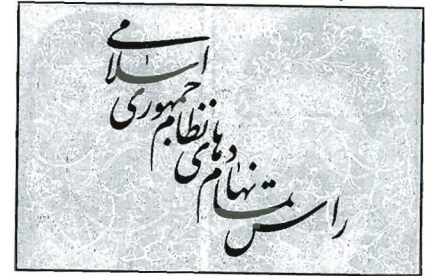 راس تمام نهادهای نظام جمهوری اسلامی